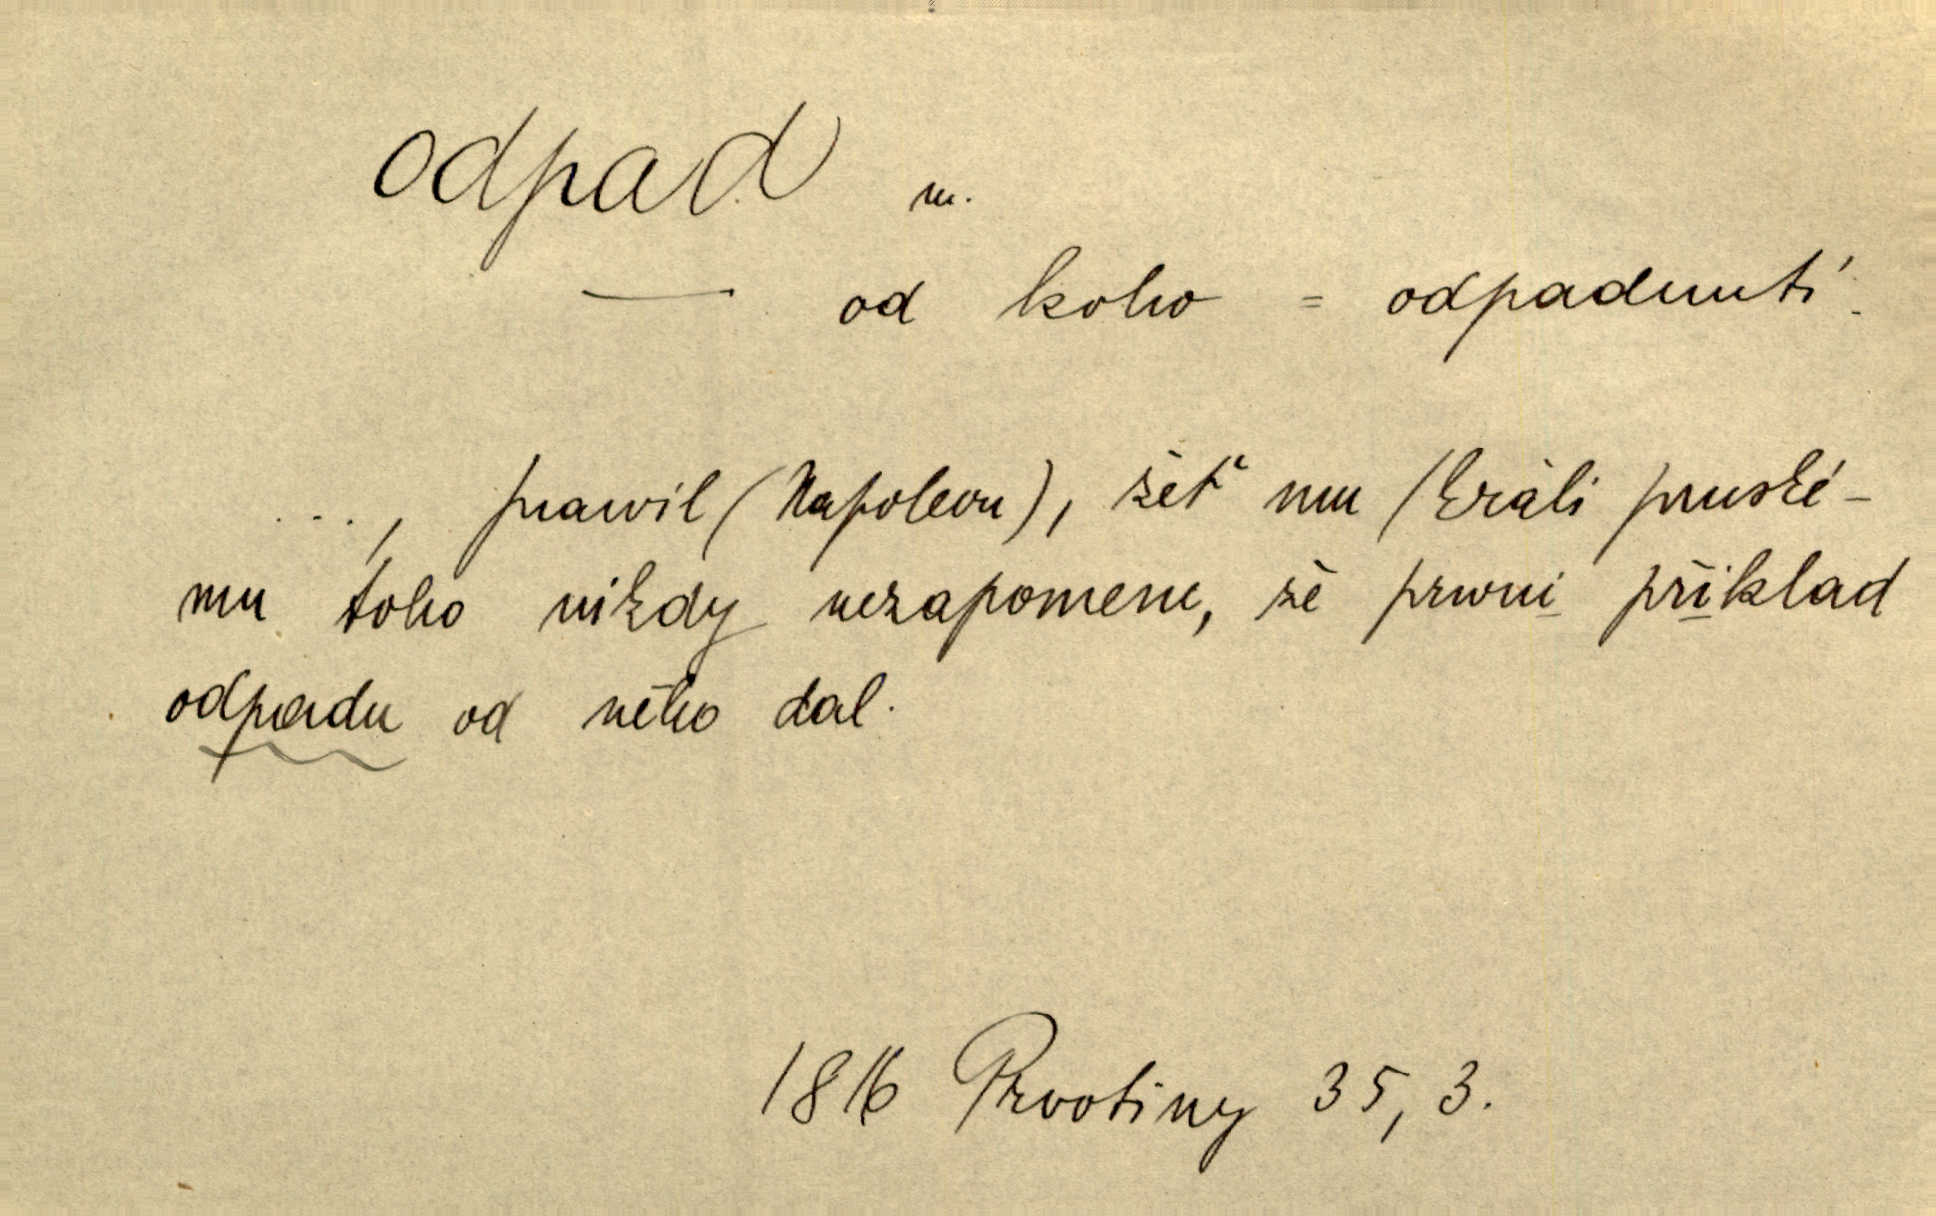 odpad m.
— od koho = odpadnutí.
..., prawil (Napoleon), žeť mu (králi pruské-
mu toho nikdy nezapomene, že prwni přiklad
odpadu od něho dal.
1816 Prvotiny 35, 3.